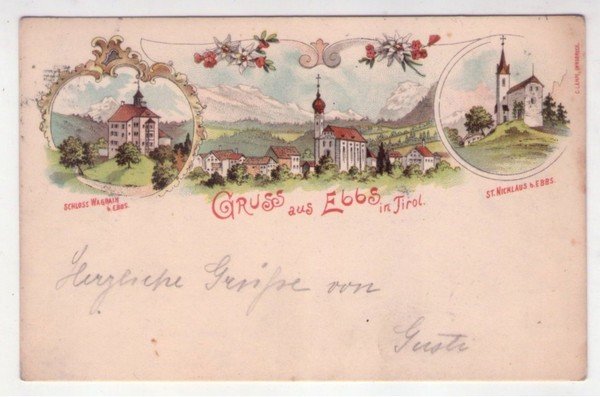 SCHLOSS WAGRAIN
b. EBBS.
GRUSS aus EBBS in Tirol.
ST. NICKLAUS b. EBBS.
Herzliche Grüße von
Gusti